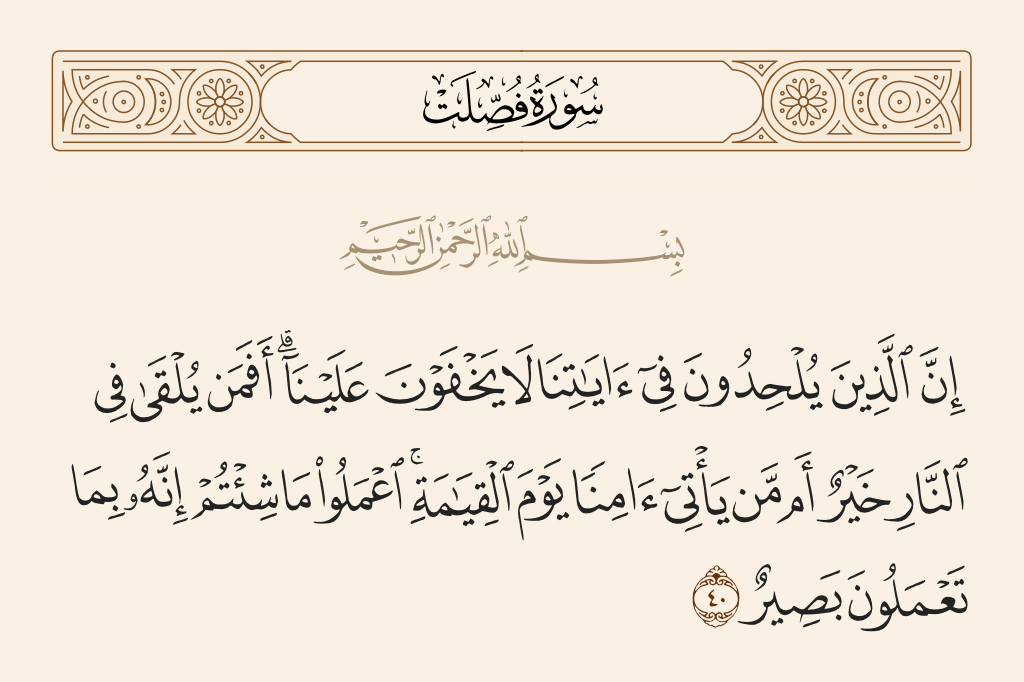 سُورَةُ فُصِّلَتْ
بِسْمِ ٱللَّهِ ٱلرَّحْمَٰنِ ٱلرَّحِيمِ
إِنَّ ٱلَّذِينَ يُلْحِدُونَ فِىٓ ءَايَـٰتِنَا لَا يَخْفَوْنَ عَلَيْنَآ ۗ أَفَمَن يُلْقَىٰ فِى
ٱلنَّارِ خَيْرٌ أَم مَّن يَأْتِىٓ ءَامِنًا يَوْمَ ٱلْقِيَـٰمَةِ ۚ ٱعْمَلُوا۟ مَا شِئْتُمْ إِنَّهُۥ بِمَا
تَعْمَلُونَ بَصِيرٌ ٤٠